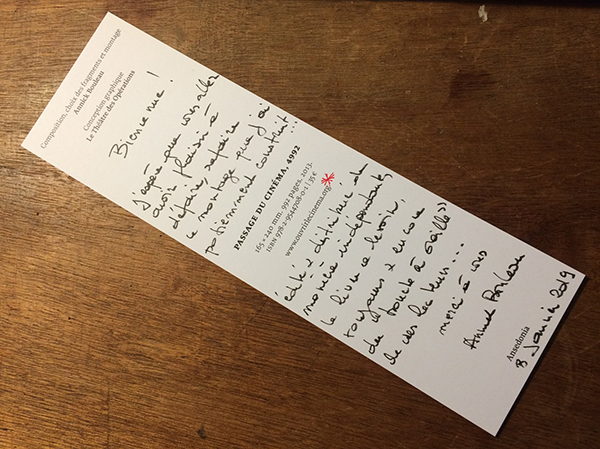 Composition, choix des fragments et montage
Annick Bouleau
Conception graphique
Le Théâtre des Opérations
Bienvenue !
J'espère que vous allez
avoir plaisir à
défaire, refaire
le montage que j'ai
patiemment construit.
PASSAGE DU CINÉMA, 4992
165 × 240 mm, 992 pages, 2013.
ISBN 978-2-9544708-0-1 | 35 €
www.ouvrirlecinema.org
édité & distribué de
manière indépendante,
le livre a besoin,
toujours & encore
du bouche à oreilles
de ses lecteurs...
merci à vous
Annick Bouleau
Ansedonia
8 janvier 2019